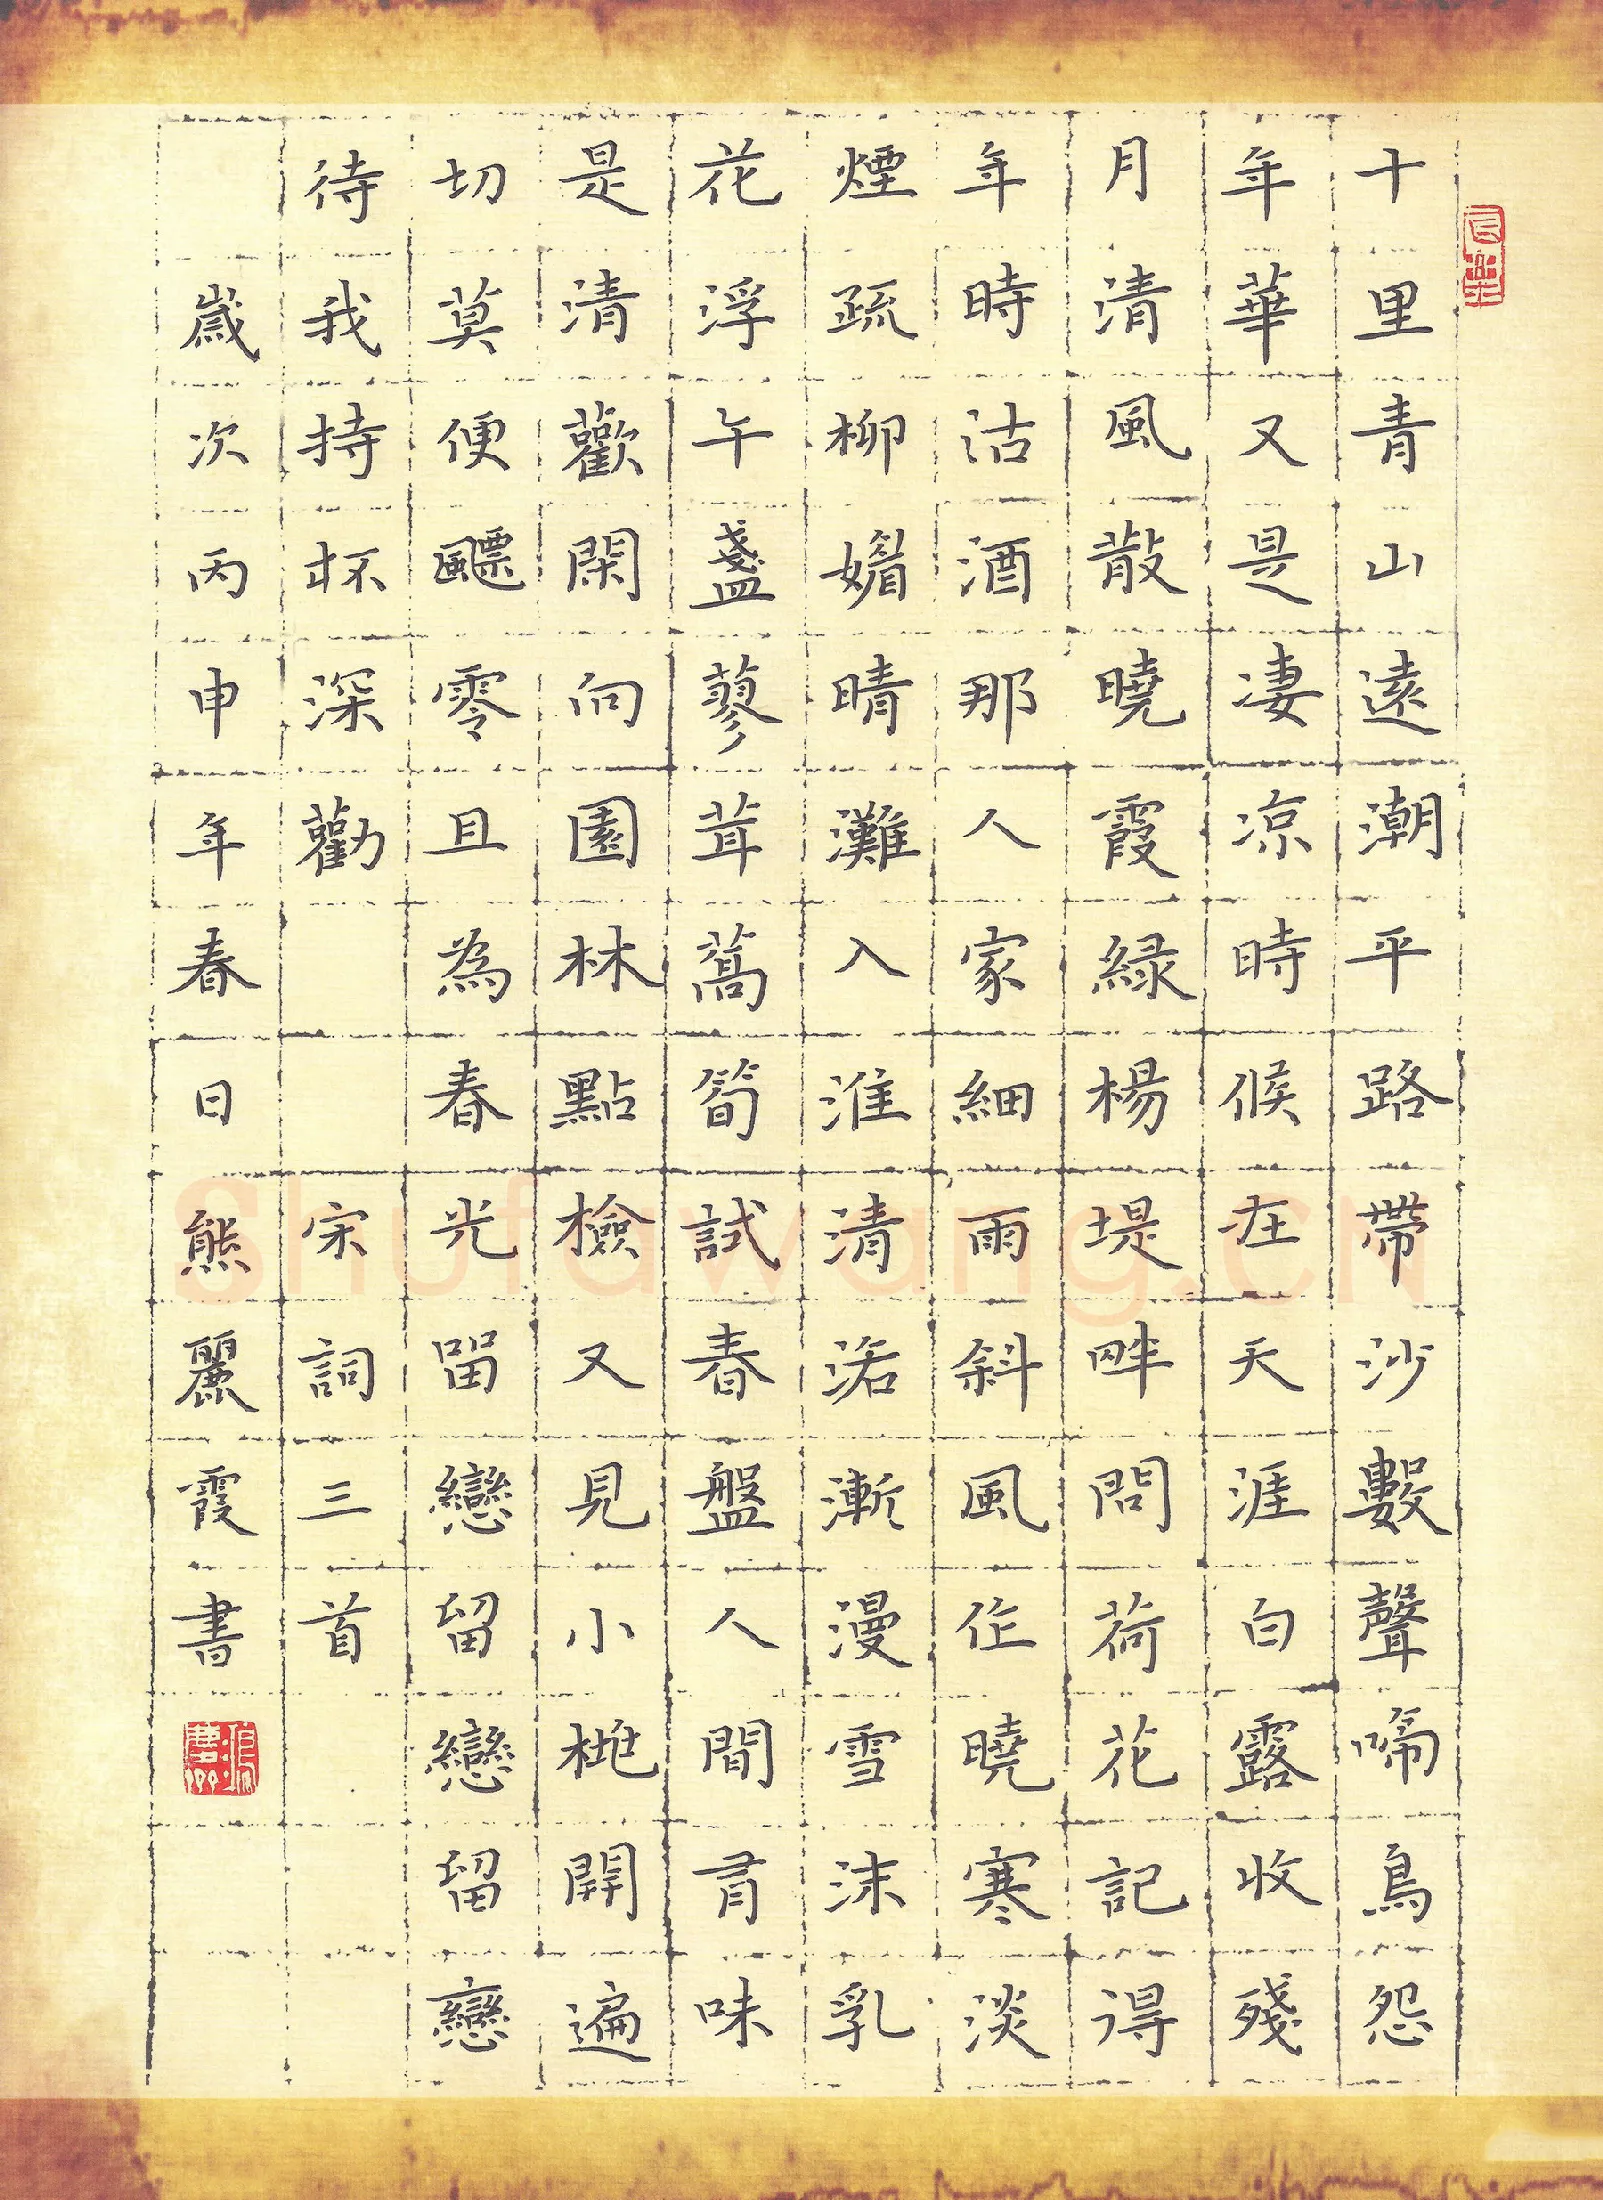 十里青山遠潮平路帶沙數聲啼鳥怨
年華又是凄凉時候在天涯白露收殘
月清風散曉霞緑楊堤畔問荷花記得
年時沽酒那人家細雨斜風作曉寒淡
煙疏柳媚晴灘入淮清洛漸漫雪沫乳
花浮午盞蓼茸蒿筍試春盤人間有味
是清歡閑向園林點檢又見小桃開遍
切莫便飄零且為春光留戀留戀留戀
待我持杯深勸 宋詞三首
歲次丙申年春日熊麗霞書
Shufawang.cn